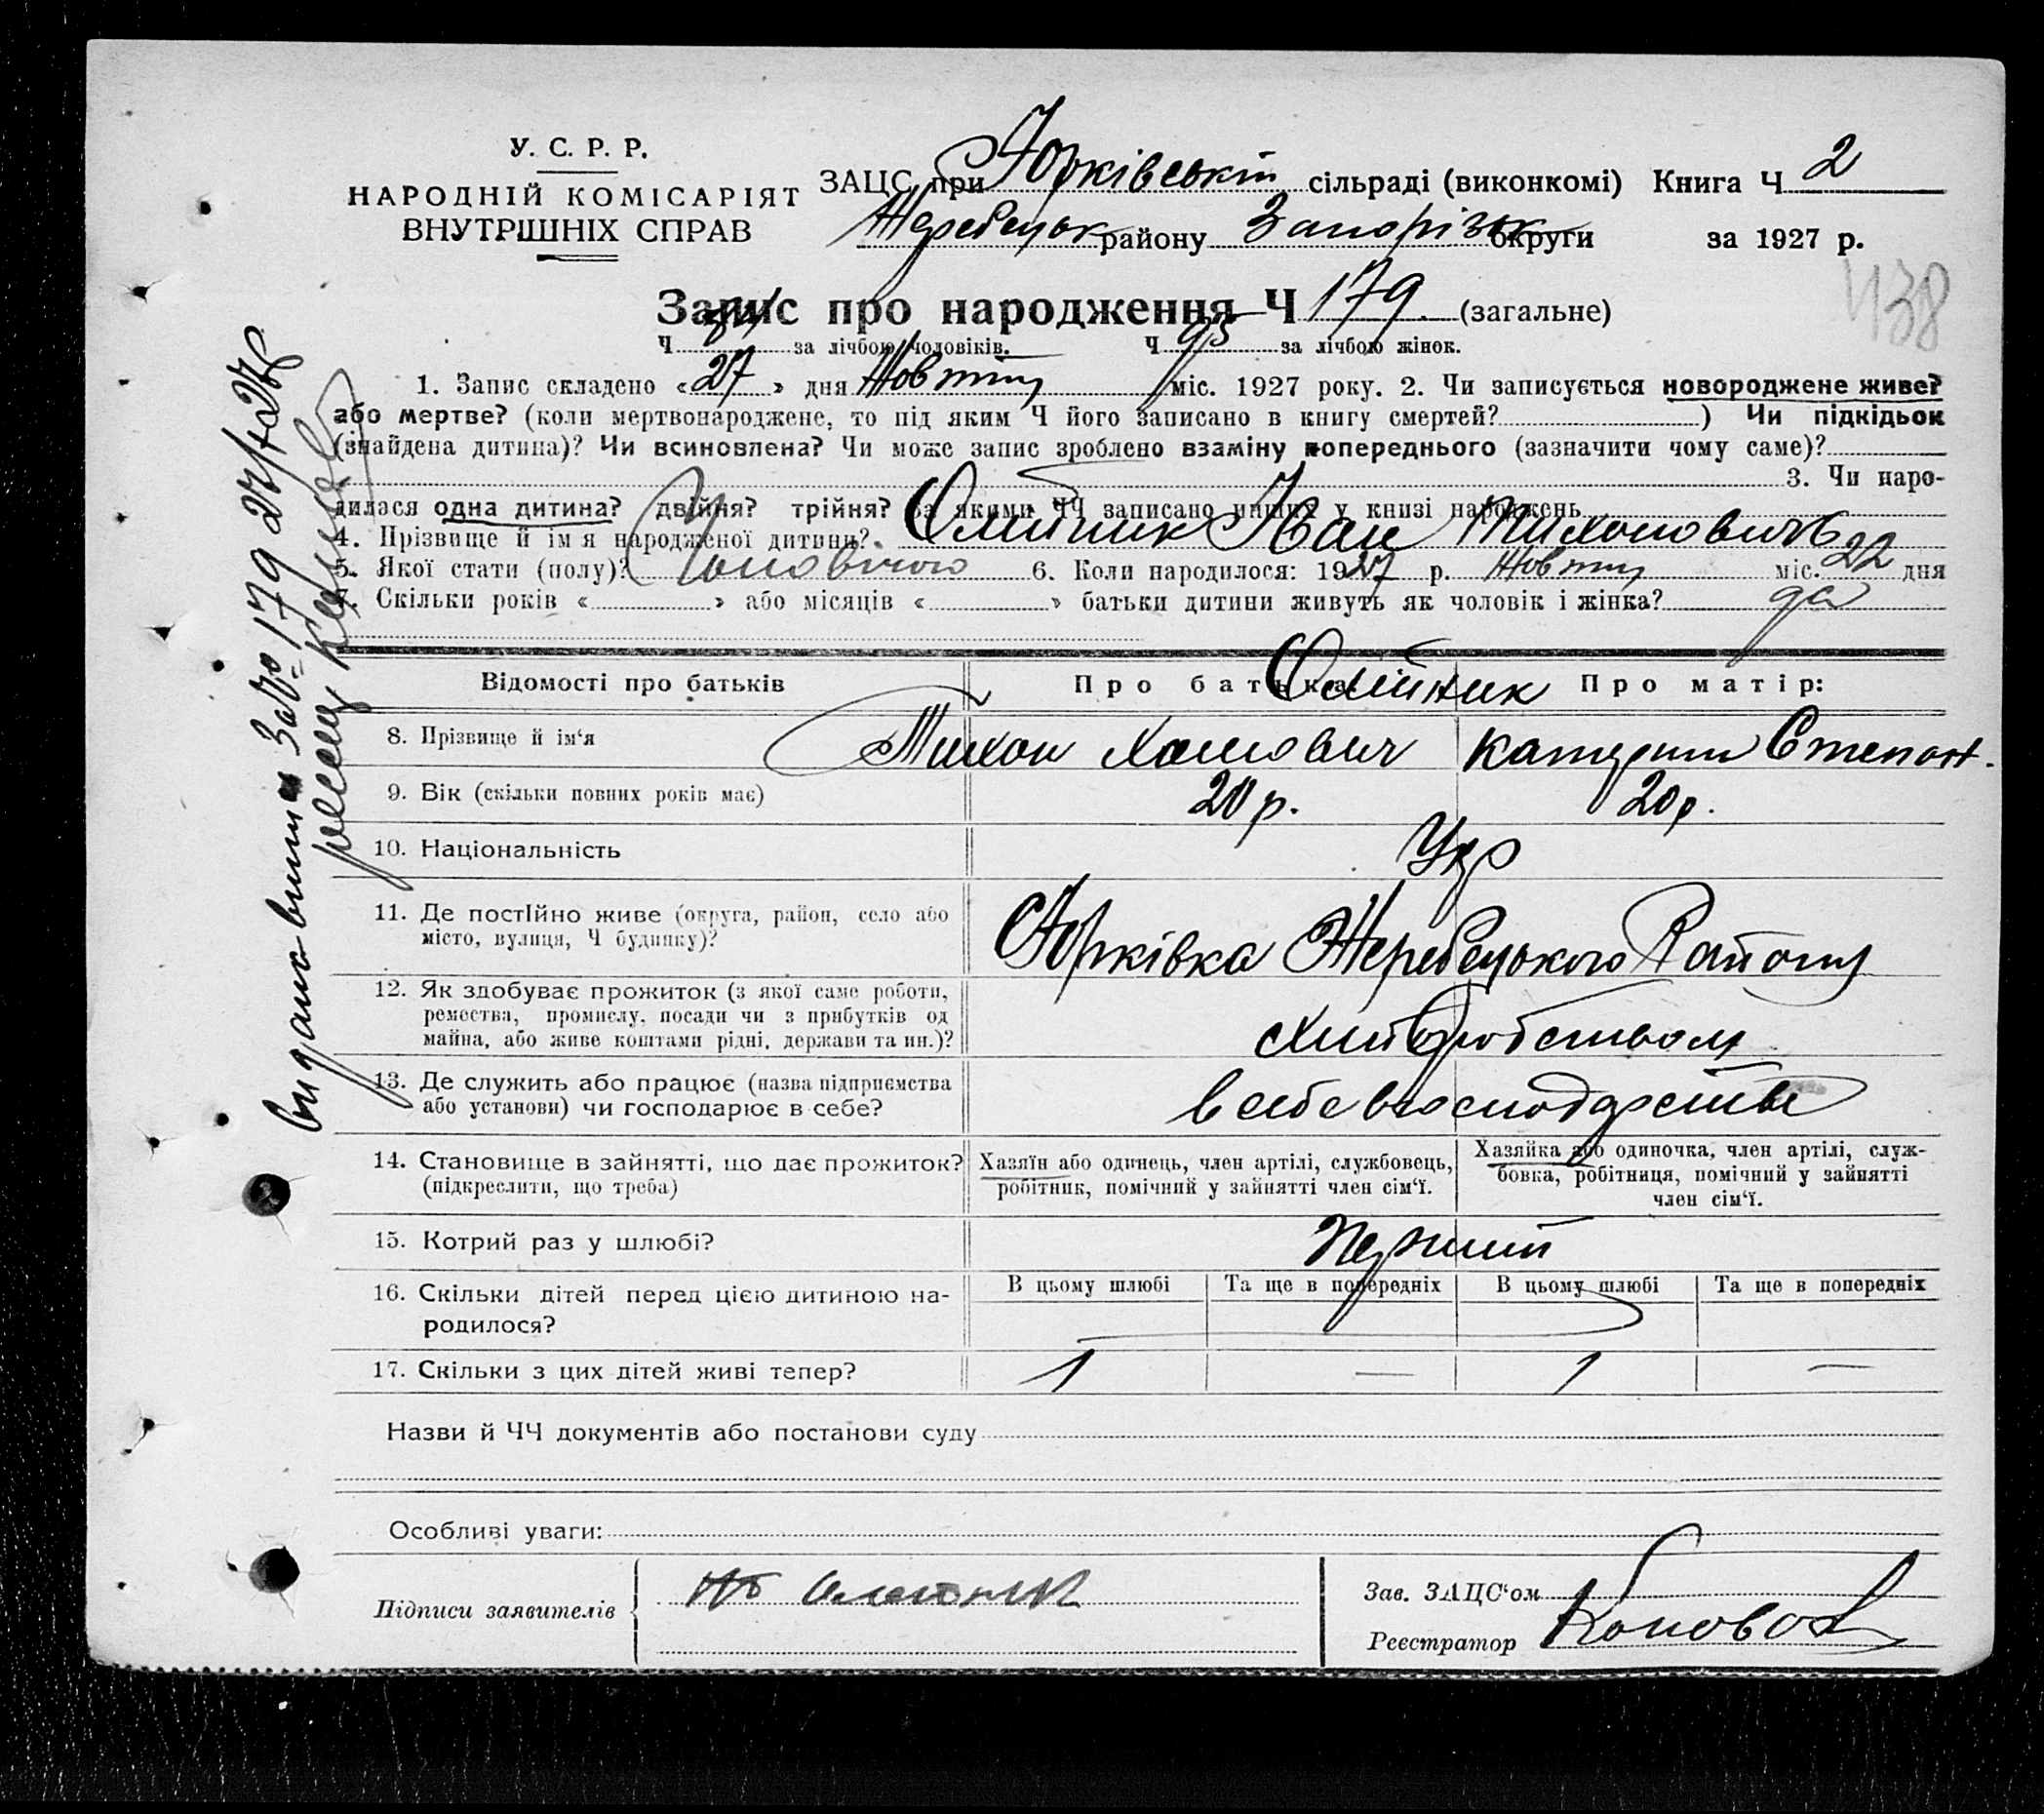 У. С. Р. Р.
НАРОДНІЙ КОМІСАРІЯТ
ВНУТРІШНІХ СПРАВ
ЗАЦС при Юрківській сільраді (виконкомі) Книга Ч 2
Жеребецьк району Запорізьк округи за 1927 р.
438
Запис про народження Ч 179 (загальне)
Ч 84 за лічбою чоловіків. Ч 95 за лічбою жінок.
1. Запис складено «27» дня Жовтня міс. 1927 року. 2. Чи записується новороджене живе?
або мертве? (коли мертвонароджене, то під яким Ч його записано в книгу смертей? ) Чи підкідьок
(знайдена дитина)? Чи всиновлена? Чи може запис зроблено взаміну попереднього (зазначити чому саме)?
3. Чи наро-
дилася одна дитина? двійня? трійня? За якими ЧЧ записано инших у книзі народжень
4. Прізвище й ім'я народженої дитини? Олійник Іван Тихонович
5. Якої статі (полу)? Чоловічого 6. Коли народилося: 1927 р. Жовтня міс. 22 дня
7. Скільки років « » або місяців « » батьки дитини живуть як чоловік і жінка? да
Відомості про батьків Про батька: Про матір:
Олійник
8. Прізвище й ім'я Тихон Хомович Катерина Степан.
9. Вік (скільки повних років має) 20 р. 20 р.
10. Національність Укр
11. Де постійно живе (округа, район, село або
місто, вулиця, Ч будинку)?
Юрківка Жеребецького Району
12. Як здобуває прожиток (з якої саме роботи,
ремества, промислу, посади чи з прибутків од
майна, або живе коштами рідні, держави та ин.)?
хліборобством
13. Де служить або працює (назва підприємства
або установи) чи господарює в себе?
в себе в господарстві
14. Становище в зайнятті, що дає прожиток?
(підкреслити, що треба)
Хазяїн або одинець, член артілі, службовець,
робітник, помічний у зайнятті член сім'ї.
Хазяйка або одиночка, член артілі, служ-
бовка, робітниця, помічний у зайнятті
член сім'ї.
15. Котрий раз у шлюбі? Перший
16. Скільки дітей перед цією дитиною на-
родилося?
В цьому шлюбі Та ще в попередніх В цьому шлюбі Та ще в попередніх
17. Скільки з цих дітей живі тепер? 1 — 1 —
Назви й ЧЧ документів або постанови суду
Особливі уваги:
Підписи заявителів Олейник
Зав. ЗАЦС'ом
Реєстратор Коновал
Видано випис за № 179 27/X 27 р.